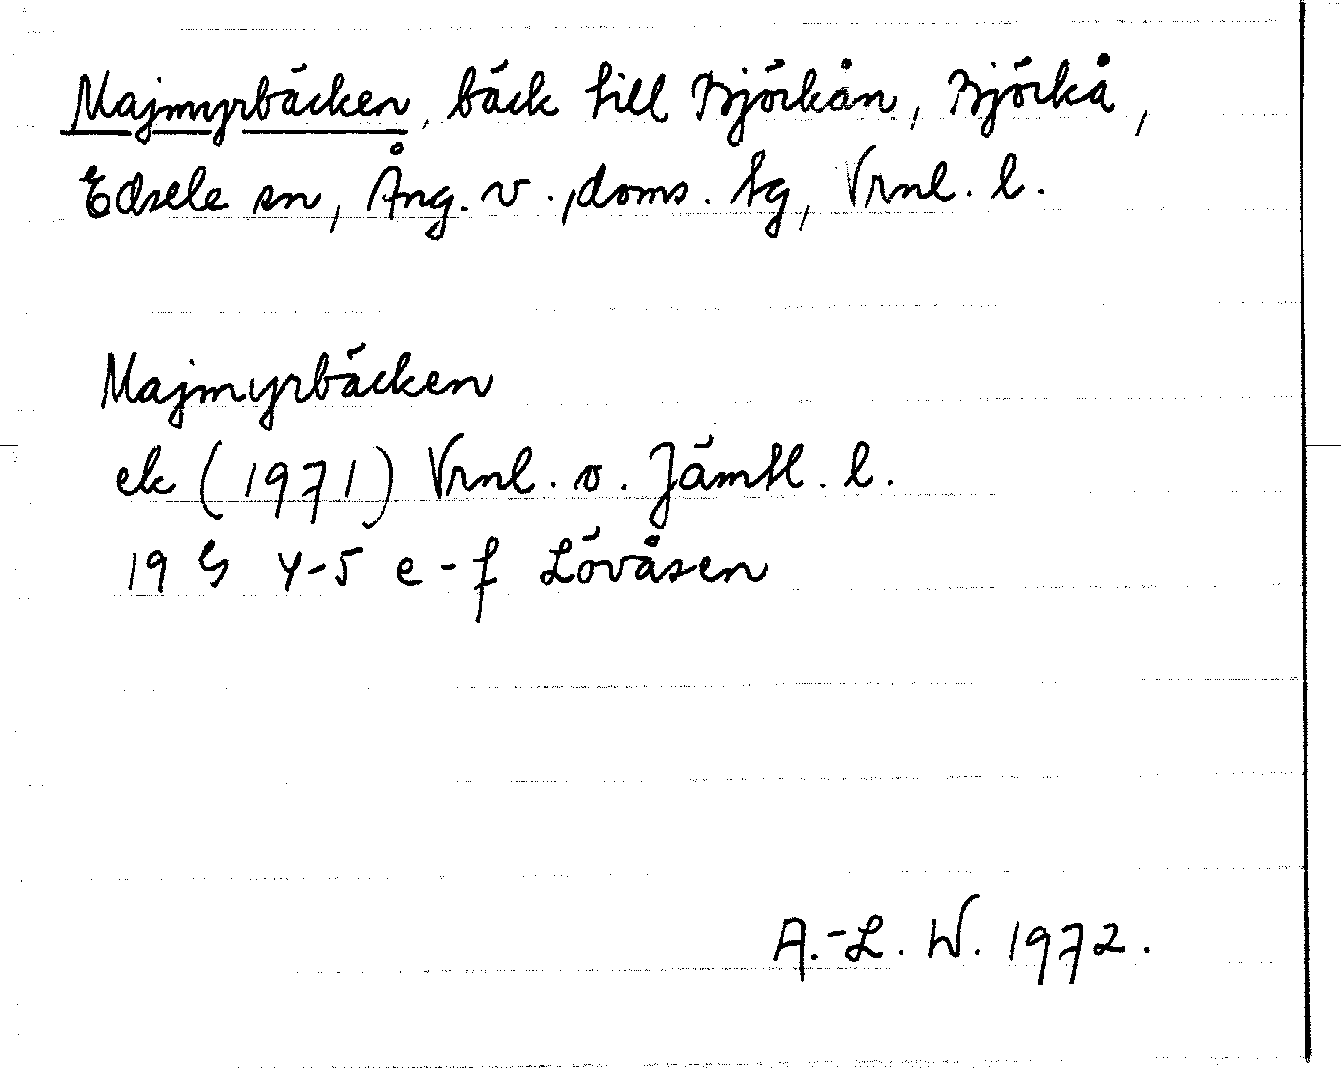 Majmyrbäcken, bäck till Björkån, Björkå,
Edsele sn, Ång. v. doms. tg, Vrnl. l.
Majmyrbäcken
ek (1971) Vrnl. o. Jämtl. l.
19 G 4-5 e-f Lövåsen
A.-L. W. 1972.